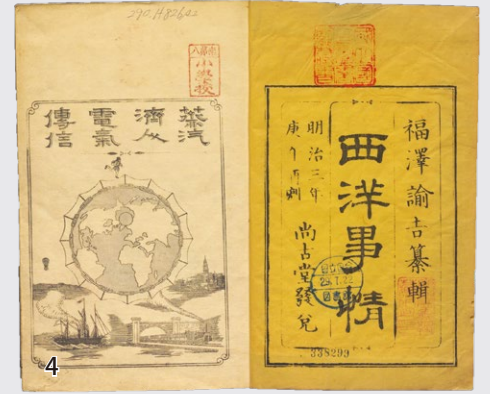 福澤諭吉纂輯
西洋事情
明治三年
庚午
尚古堂發兌
338299
290.H826
小學校
蒸汽
濟人
電氣
傳信
4